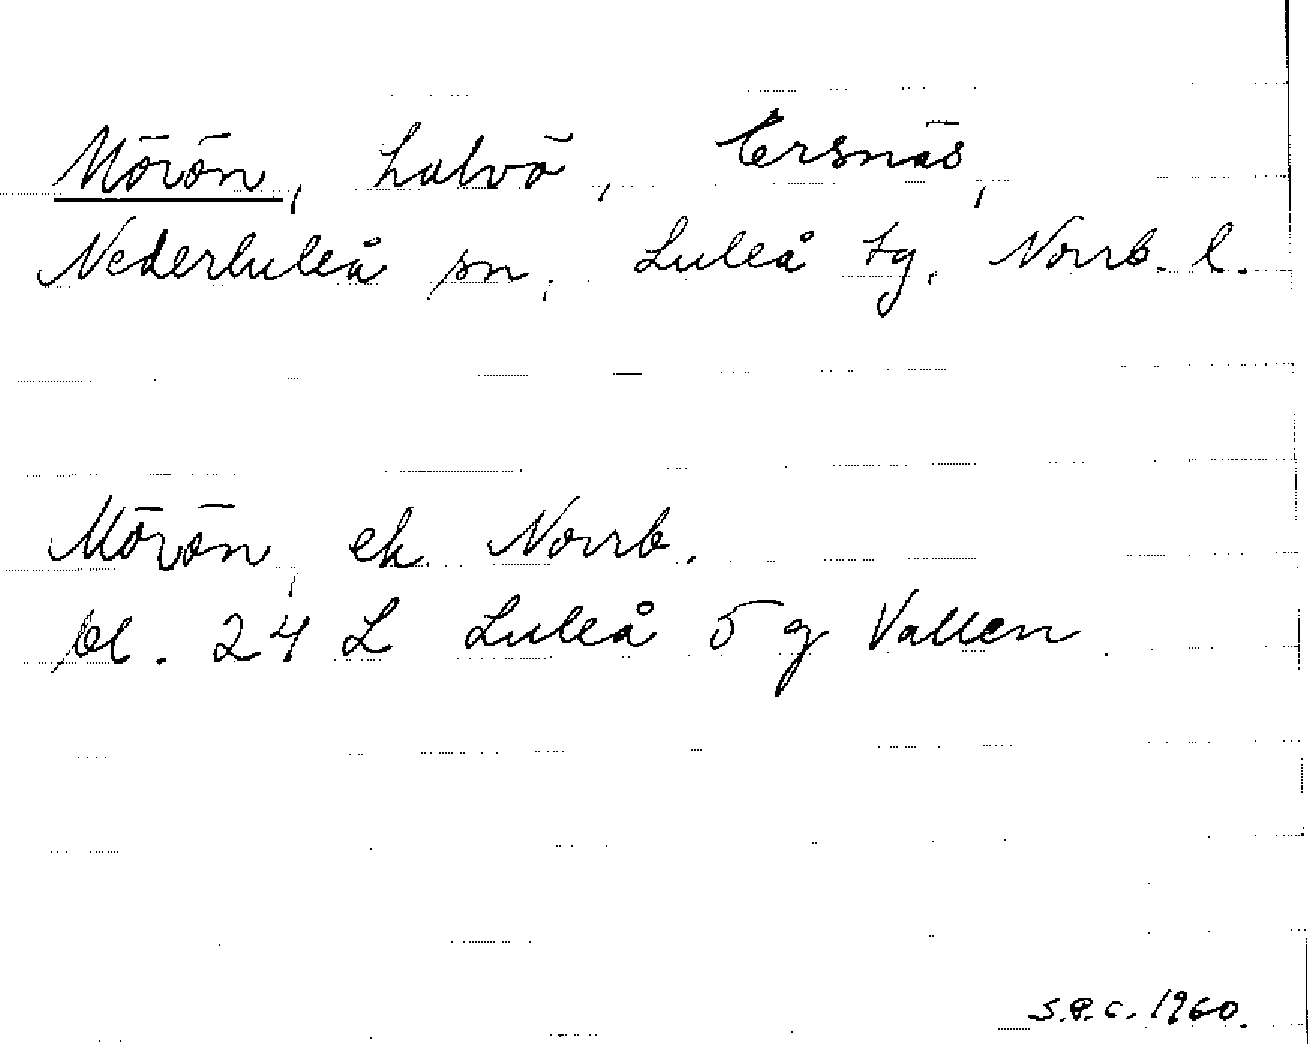 Mörön, halvö, Ersnäs,
Nederluleå sn, Luleå tg, Norrb. l.
Mörön, ek. Norrb.
bl. 24 L Luleå 5 g Vallen
S.E.C. 1960.